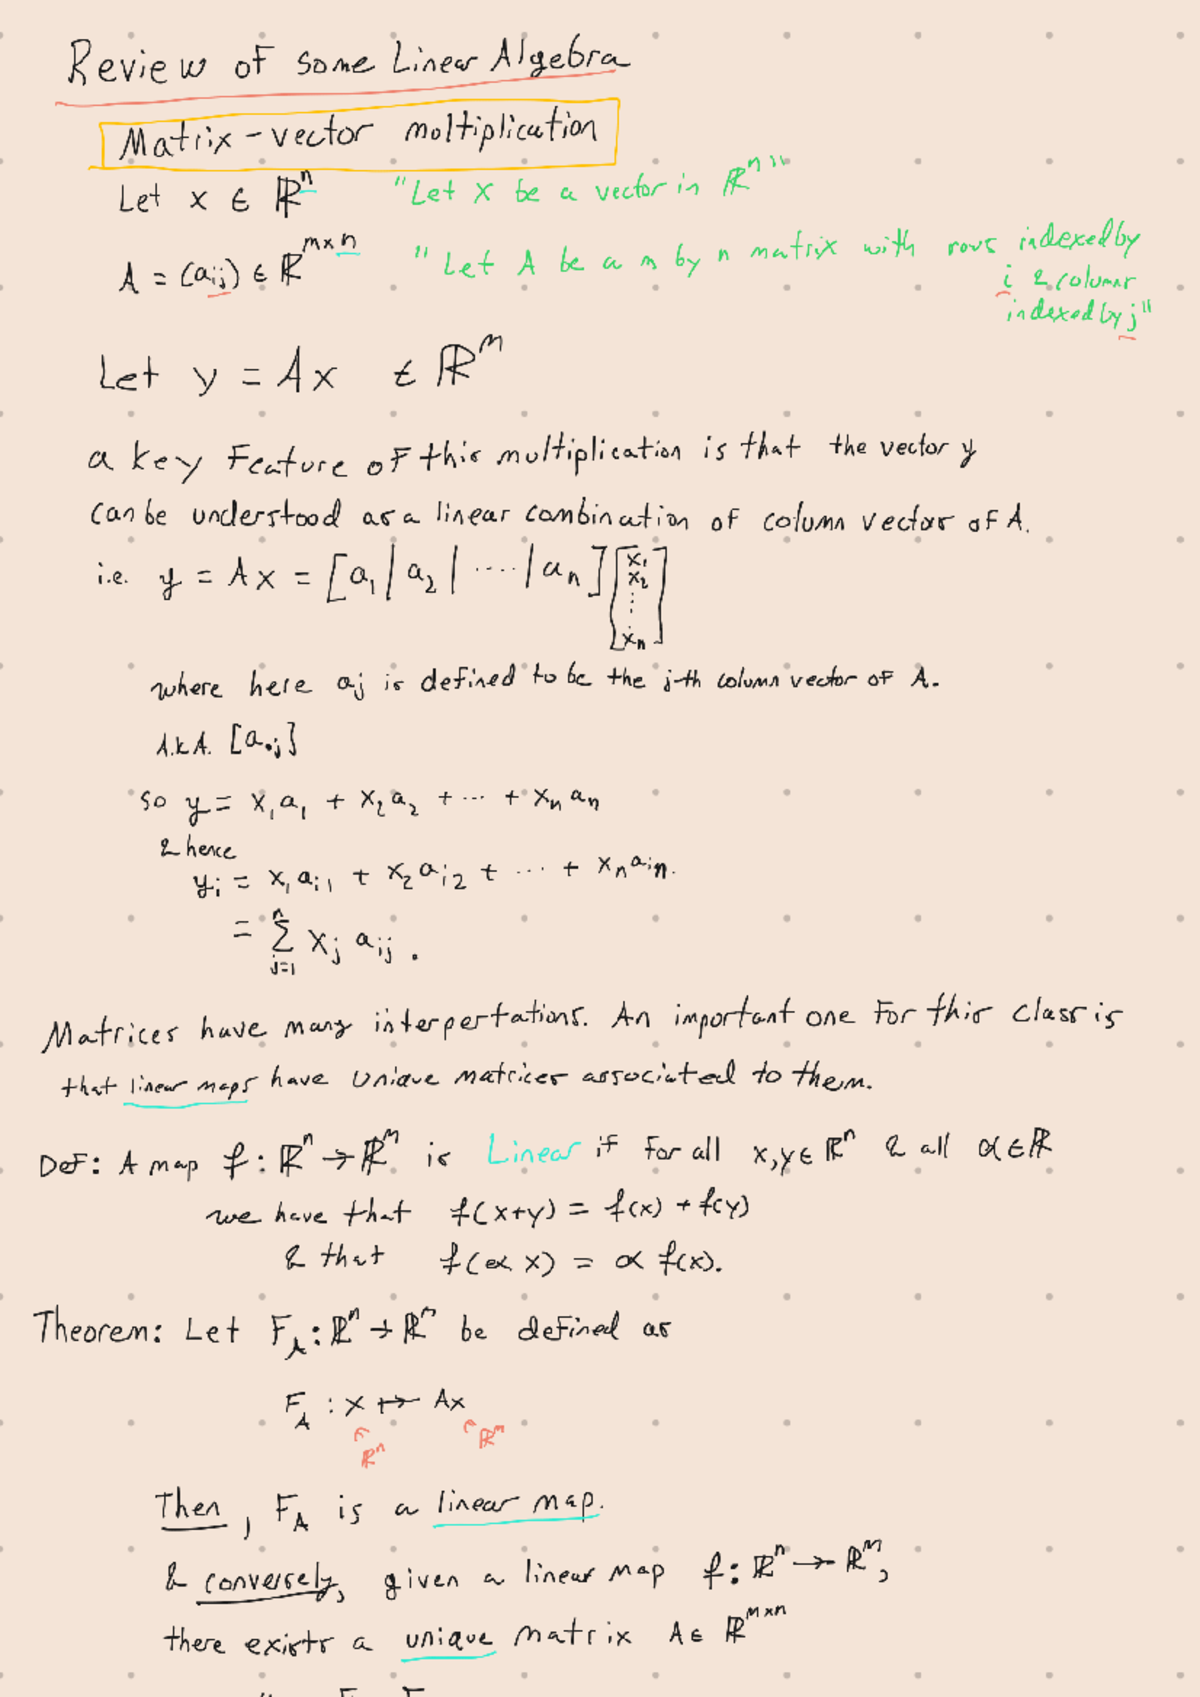 Review of some Linear Algebra
Matrix-vector moltiplication
Let x ∈ ℝⁿ "Let x be a vector in ℝⁿ"
A = (aᵢⱼ) ∈ ℝᵐˣⁿ "Let A be a m by n matrix with rows indexed by
i & columns
indexed by j"
Let y = Ax ∈ ℝᵐ
a key Feature of this multiplication is that the vector y
can be understood as a linear combination of column vectors of A.
i.e. y = Ax = [a₁ | a₂ | ···· | aₙ] [x₁ x₂ ⋮ xₙ]
where here aⱼ is defined to be the j-th column vector of A.
A.k.A. [a•ⱼ]
so y = x₁a₁ + x₂a₂ + ··· + xₙaₙ
& hence
yᵢ = x₁aᵢ₁ + x₂aᵢ₂ + ··· + xₙaᵢₙ.
= Σⁿⱼ₌₁ xⱼ aᵢⱼ.
Matrices have many interpertations. An important one For this class is
that linear maps have unique matrices associated to them.
Def: A map f: ℝⁿ → ℝᵐ is Linear if for all x,y ∈ ℝⁿ & all α ∈ ℝ
we have that f(x+y) = f(x) + f(y)
& that f(αx) = α f(x).
Theorem: Let F_A: ℝⁿ → ℝᵐ be defined as
F_A : x ↦ Ax
ℝⁿ ℝᵐ
Then, F_A is a linear map.
& conversely, given a linear map f: ℝⁿ → ℝᵐ,
there exists a unique matrix A ∈ ℝᵐˣⁿ